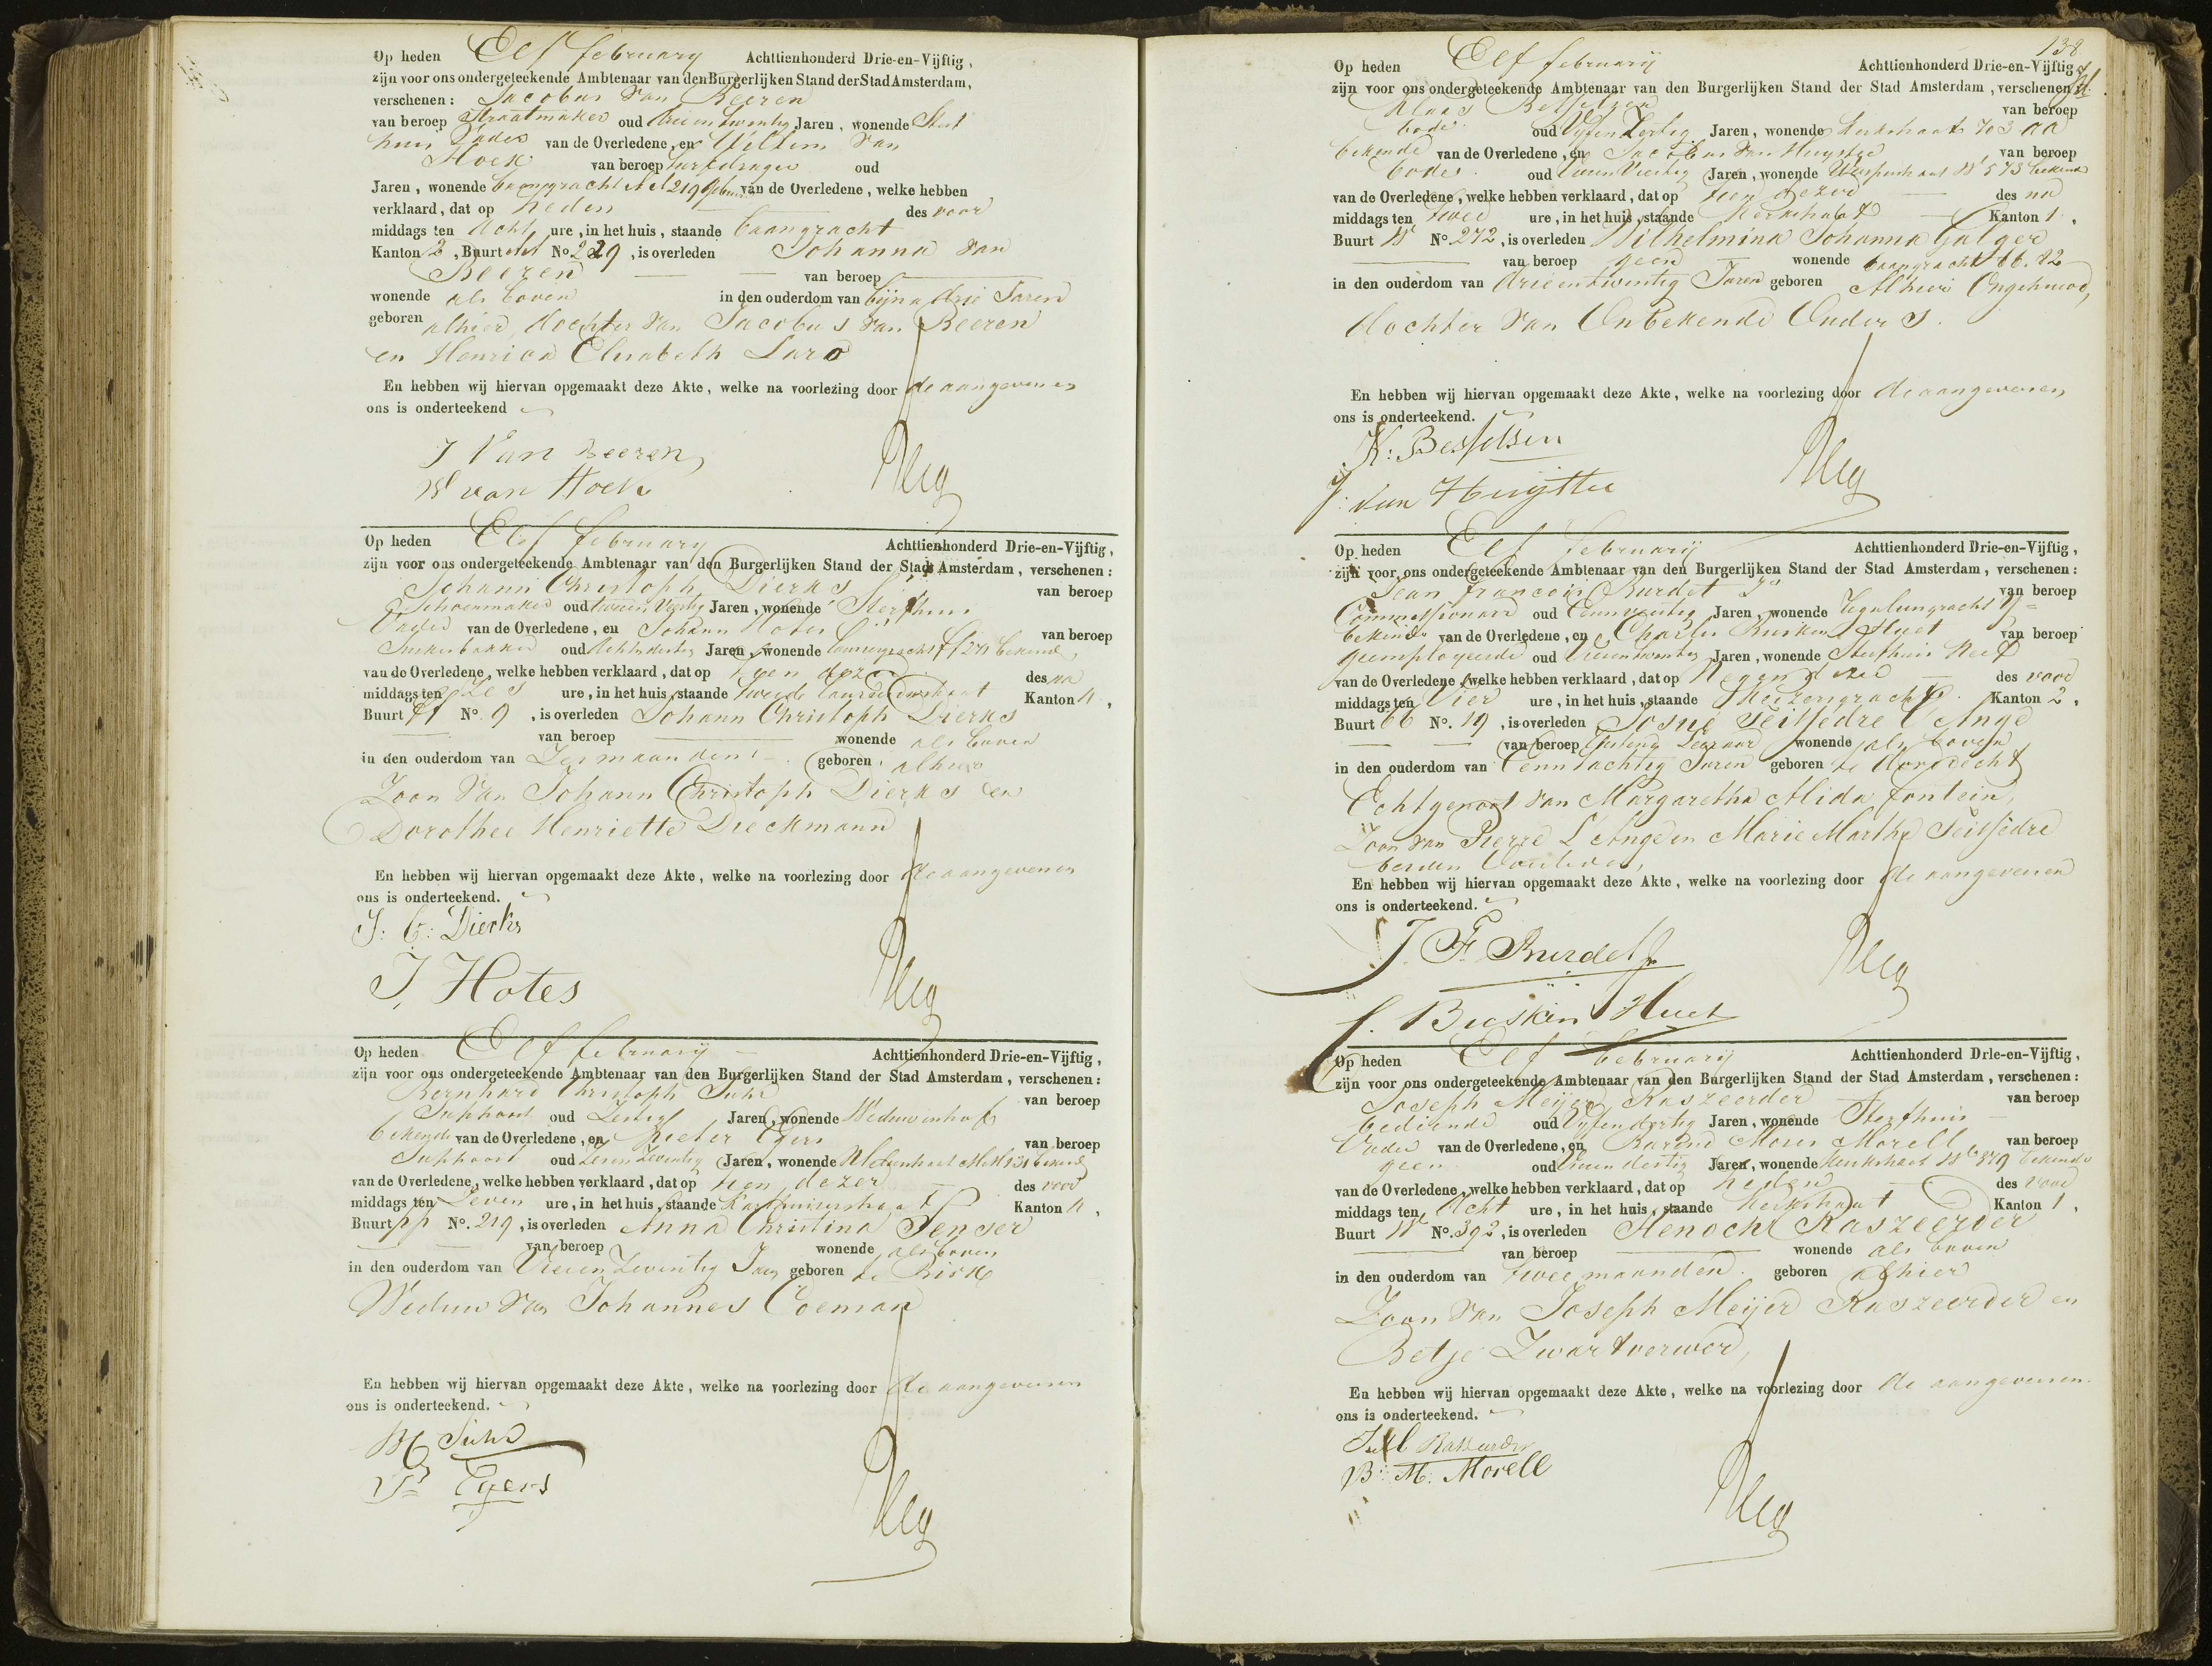 Op heden Elf february Achttienhonderd Drie-en-Vijftig,
zijn voor ons ondergeteekende Ambtenaar van den Burgerlijken Stand der Stad Amsterdam,
verschenen: Jacobus van Beeren
van beroep Straatmaker oud drie en twintig Jaren, wonende Sterf
huis Vader van de Overledene, en Willem van
Hoek van beroep turfdrager oud
Jaren, wonende baangracht 219 van de Overledene, welke hebben
verklaard, dat op heden des voor
middags ten Acht ure, in het huis, staande baangracht
Kanton 2, Buurt No 219, is overleden Johanna van
Beeren van beroep
wonende als boven in den ouderdom van bijna drie Jaren
geboren alhier, dochter van Jacobus van Beeren
en Henrica Elisabeth Laro
En hebben wij hiervan opgemaakt deze Akte, welke na voorlezing door de aangevers en
ons is onderteekend
J Van Beeren
W van Hoek
Op heden Elf february Achttienhonderd Drie-en-Vijftig,
zijn voor ons ondergeteekende Ambtenaar van den Burgerlijken Stand der Stad Amsterdam, verschenen:
Johann Christoph Dierks van beroep
Schoenmaker oud Jaren, wonende Sterfhuis
Vader van de Overledene, en Johann Hotes van beroep
Suikerbakker oud Jaren, wonende bekende
van de Overledene, welke hebben verklaard, dat op tien dezer des na
middags ten Zes ure, in het huis, staande tweede Kanton 4,
Buurt No. 9, is overleden Johann Christoph Dierks
van beroep wonende als boven
in den ouderdom van Zes maanden geboren alhier
Zoon van Johann Christoph Dierks en
Dorothee Henriette Dieckmann
En hebben wij hiervan opgemaakt deze Akte, welke na voorlezing door de aangevers en
ons is onderteekend.
J: C: Dierks
J. Hotes
Op heden Elf february Achttienhonderd Drie-en-Vijftig,
zijn voor ons ondergeteekende Ambtenaar van den Burgerlijken Stand der Stad Amsterdam, verschenen:
Bernhard Christoph Suhr van beroep
Suppoost oud Zestig Jaren, wonende Weduwenhof
bekende van de Overledene, en Pieter Egers van beroep
Suppoost oud Jaren, wonende bekende
van de Overledene, welke hebben verklaard, dat op tien dezer des voor
middags ten Zeven ure, in het huis, staande Karthuizerstraat Kanton 4,
Buurt pp No. 219, is overleden Anna Christina Jenser
van beroep wonende als boven
in den ouderdom van Vier en Zeventig Jaren geboren te
Weduwe van Johannes Coeman
En hebben wij hiervan opgemaakt deze Akte, welke na voorlezing door de aangevers en
ons is onderteekend.
B C Suhr
P Egers
138
Op heden Elf february Achttienhonderd Drie-en-Vijftig
zijn voor ons ondergeteekende Ambtenaar van den Burgerlijken Stand der Stad Amsterdam, verschenen
Klaas Besselsen van beroep
bode oud Vijf en Zestig Jaren, wonende Kerkstraat 703
bekende van de Overledene, en Jacobus van Huystee van beroep
bode oud Jaren, wonende Utrechtschestraat 573 bekende
van de Overledene, welke hebben verklaard, dat op tien dezer des na
middags ten twee ure, in het huis, staande Kerkstraat Kanton 1,
Buurt W No. 272, is overleden Wilhelmina Johanna Galger
van beroep geen wonende baangracht 66. 82
in den ouderdom van drie en twintig Jaren geboren Alhier Ongehuwd,
dochter van Onbekende Ouders.
En hebben wij hiervan opgemaakt deze Akte, welke na voorlezing door de aangevers en
ons is onderteekend.
K: Besselsen
J: van Huijstee
Op heden Elf february Achttienhonderd Drie-en-Vijftig,
zijn voor ons ondergeteekende Ambtenaar van den Burgerlijken Stand der Stad Amsterdam, verschenen:
Jean Francois Burdet Jr van beroep
Commissionair oud Jaren, wonende
bekende van de Overledene, en Charles Busken Huet van beroep
geemployeerde oud Jaren, wonende Sterfhuis Neef
van de Overledene, welke hebben verklaard, dat op Negen dezer des voor
middags ten Vier ure, in het huis, staande Keizersgracht Kanton 2,
Buurt 66 No. 19, is overleden Josué Teissedre L'Ange
van beroep wonende als boven
in den ouderdom van Een en tachtig Jaren geboren te Dordrecht
Echtgenoot van Margaretha Alida Fontein,
Zoon van Pierre L'Ange en Marie Marthe Teissedre
beiden Overleden,
En hebben wij hiervan opgemaakt deze Akte, welke na voorlezing door de aangevers en
ons is onderteekend.
J. F. Burdet Jr
C. Busken Huet
Op heden Elf february Achttienhonderd Drie-en-Vijftig,
zijn voor ons ondergeteekende Ambtenaar van den Burgerlijken Stand der Stad Amsterdam, verschenen:
Joseph Meijer Raszeerder van beroep
bediende oud Vijf en dertig Jaren, wonende Sterfhuis
Vader van de Overledene, en Barend Moses Morell van beroep
geen oud Jaren, wonende Kerkstraat 379 bekende
van de Overledene, welke hebben verklaard, dat op heden des voor
middags ten Acht ure, in het huis, staande Kerkstraat Kanton 1,
Buurt W No. 392, is overleden Henoch Raszeerder
van beroep wonende als boven
in den ouderdom van twee maanden geboren alhier
Zoon van Joseph Meijer Raszeerder en
Betje Zwartverwer,
En hebben wij hiervan opgemaakt deze Akte, welke na voorlezing door de aangevers en
ons is onderteekend.
B: M: Morell